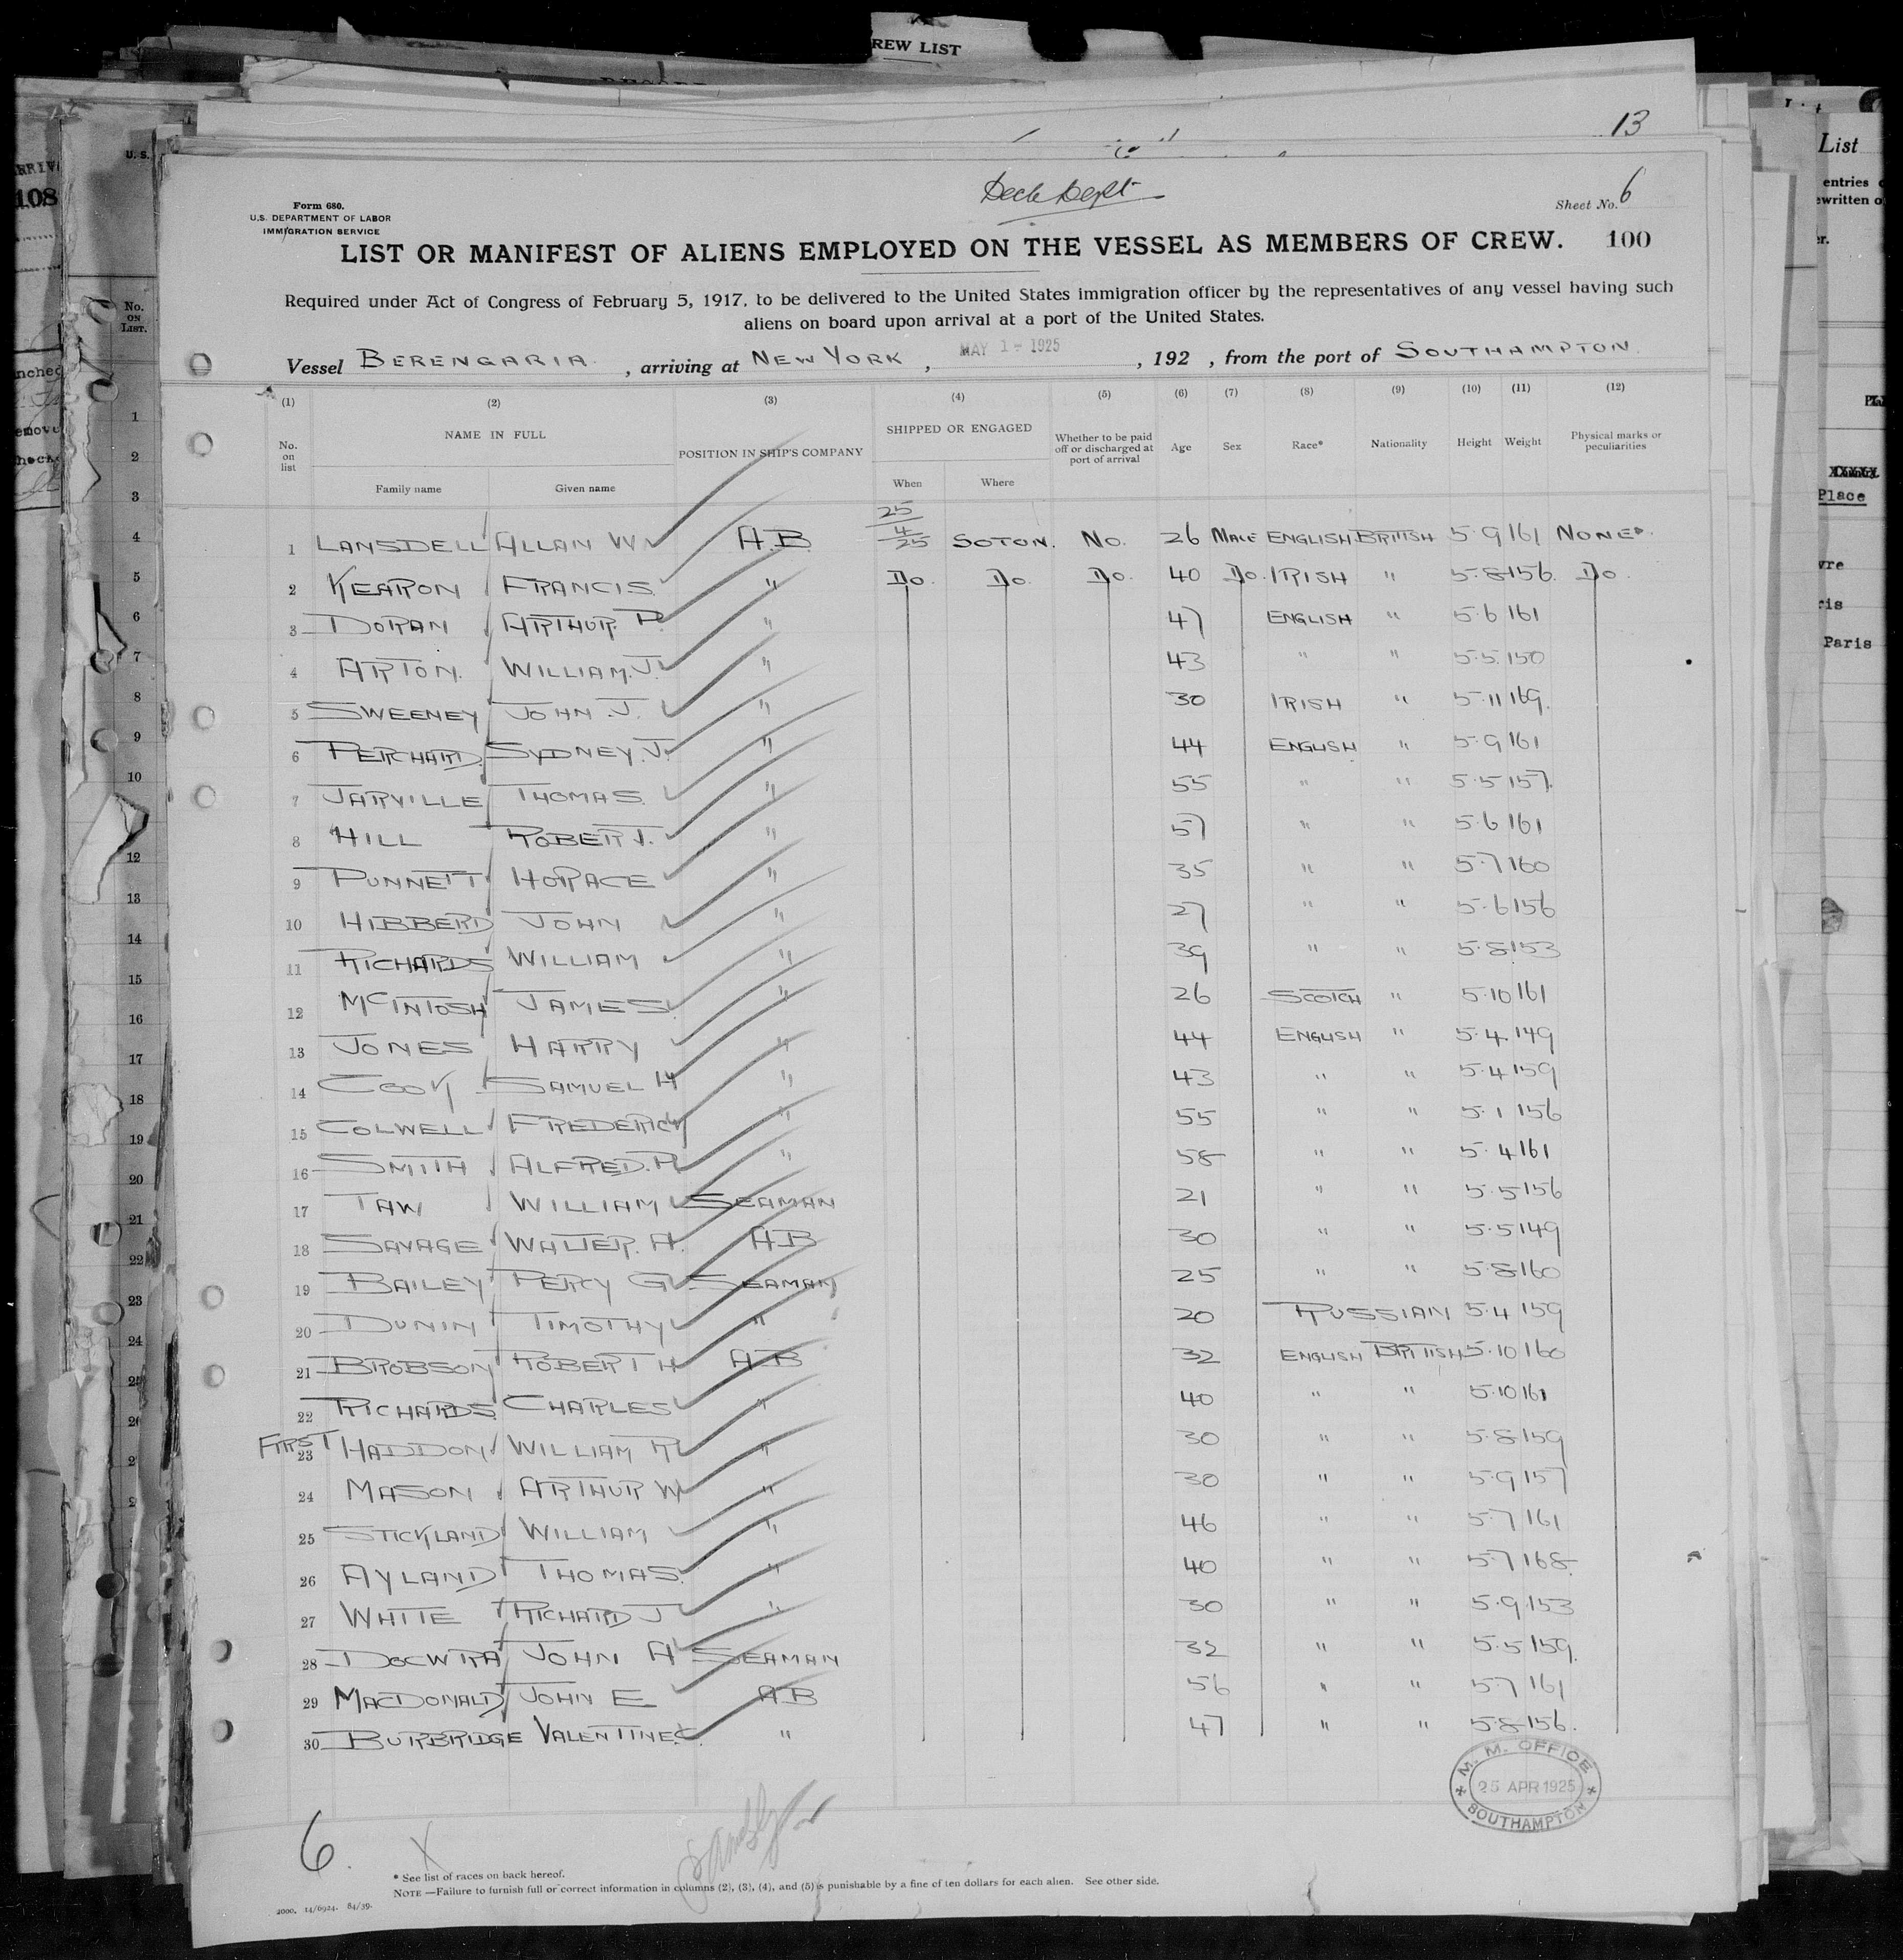 REW LIST
13
Deck Dept
Form 680.
U.S. DEPARTMENT OF LABOR
IMMIGRATION SERVICE
Sheet No. 6
LIST OR MANIFEST OF ALIENS EMPLOYED ON THE VESSEL AS MEMBERS OF CREW. 100
Required under Act of Congress of February 5, 1917, to be delivered to the United States immigration officer by the representatives of any vessel having such
aliens on board upon arrival at a port of the United States.
Vessel BERENGARIA, arriving at NEW YORK, MAY 1 - 1925, 192 , from the port of SOUTHAMPTON.
(1) (2) (3) (4) (5) (6) (7) (8) (9) (10) (11) (12)
No. on list NAME IN FULL POSITION IN SHIP'S COMPANY SHIPPED OR ENGAGED Whether to be paid off or discharged at port of arrival Age Sex Race* Nationality Height Weight Physical marks or peculiarities
Family name Given name When Where
1 LANSDELL ALLAN W. A.B. 25/4/25 SOTON. NO. 26 MALE ENGLISH BRITISH 5-9 161 NONE.
2 KEARON FRANCIS. " DO. DO. DO. 40 DO. IRISH " 5-8 156. DO.
3 DORAN ARTHUR. P. " 47 ENGLISH " 5-6 161
4 ARTON. WILLIAM. J. " 43 " " 5.5. 150
5 SWEENEY JOHN. J. " 30 IRISH " 5-11 169.
6 PERCHARD. SYDNEY. J. " 44 ENGLISH " 5-9 161
7 JARVILLE THOMAS. " 55 " " 5.5 157.
8 HILL ROBERT. " 57 " " 5.6 161
9 PUNNETT HORACE " 35 " " 5.7 160
10 HIBBERD JOHN " 27 " " 5.6 156
11 RICHARDS WILLIAM " 39 " " 5.8 153
12 MCINTOSH JAMES. " 26 SCOTCH " 5.10 161
13 JONES HARRY " 44 ENGLISH " 5.4. 149
14 COOK SAMUEL H " 43 " " 5.4 159
15 COLWELL FREDERICK " 55 " " 5.1 156
16 SMITH ALFRED. R. " 58 " " 5.4 161
17 TAW WILLIAM SEAMAN 21 " " 5.5 156
18 SAVAGE WALTER. A. AB 30 " " 5.5 149
19 BAILEY PERCY G SEAMAN 25 " " 5.8 160
20 DUNIN TIMOTHY " 20 RUSSIAN 5.4 159
21 BROBSON ROBERT H AB 32 ENGLISH BRITISH 5.10 160
22 RICHARDS. CHARLES " 40 " " 5.10 161
FIRST
23 HADDON WILLIAM R " 30 " " 5.8 159
24 MASON ARTHUR W " 30 " " 5.9 157
25 STICKLAND WILLIAM " 46 " " 5.7 161
26 AYLAND THOMAS. " 40 " " 5.7 168.
27 WHITE RICHARD J " 30 " " 5.9 153
28 DOCWRA JOHN A SEAMAN 32 " " 5.5 159.
29 MACDONALD JOHN E AB 56 " " 5.7 161
30 BURBRIDGE VALENTINE. C. " 47 " " 5.8 156.
M. M. OFFICE
25 APR 1925
SOUTHAMPTON
6. X
* See list of races on back hereof.
NOTE —Failure to furnish full or correct information in columns (2), (3), (4), and (5) is punishable by a fine of ten dollars for each alien. See other side.
2000. 14/6924. 84/39.
108
U. S.
No. ON LIST.
1
2
3
4
5
6
7
8
9
10
12
13
14
15
16
17
18
19
20
21
22
23
24
List
entries
Place
Paris